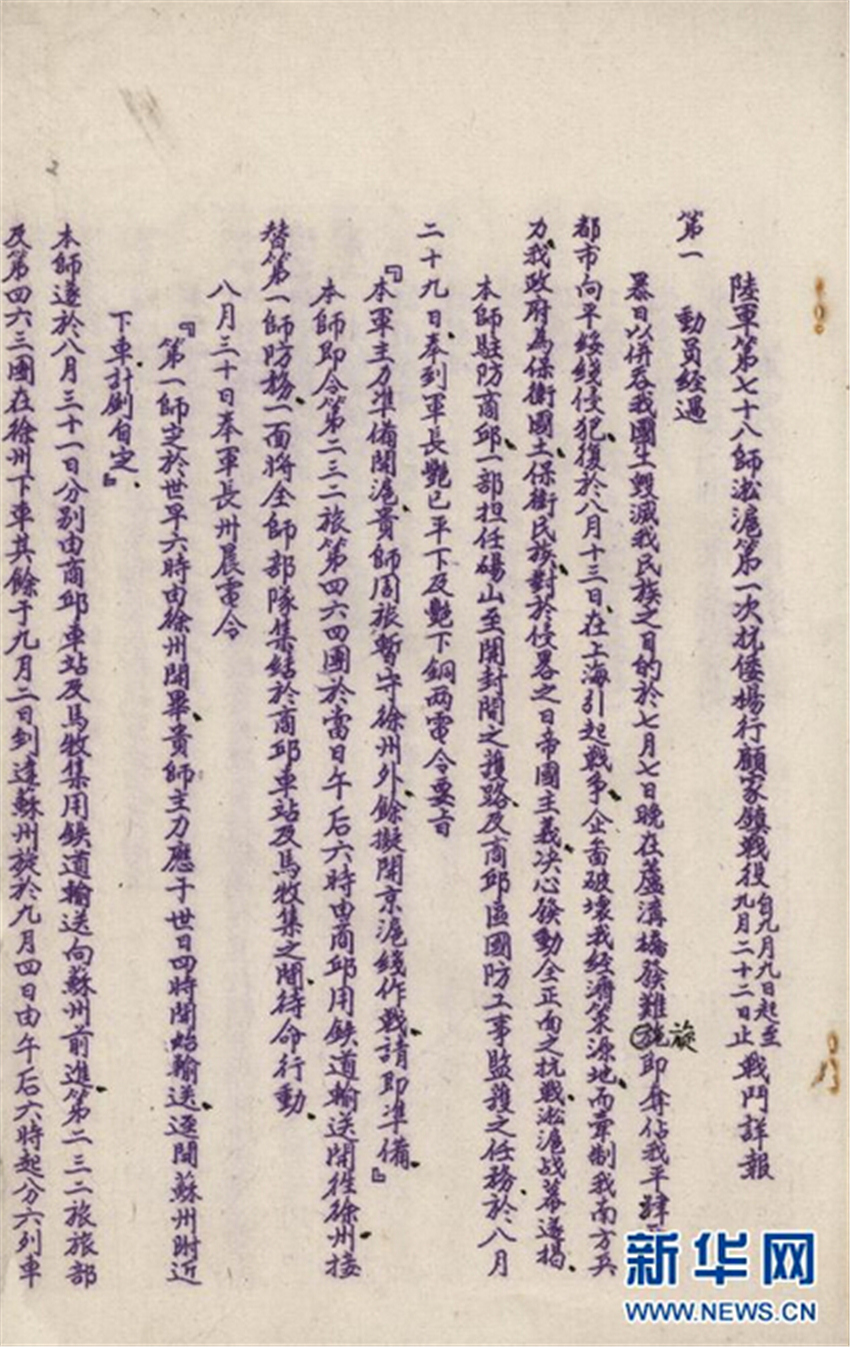 陸軍第七十八師淞滬第一次抗倭楊行顧家鎮戰役自九月九日起至九月二十二日止戰鬥詳報
第一 動員經過
暴日以併吞我國土毀滅我民族之目的於七月七日晚在蘆溝橋發難旋即奪佔我平肆
都市向平綏綫侵犯復於八月十三日、在上海引起戰爭企啚破壞我經濟策源地、而牽制我南方兵
力、我政府為保衛國土、保衛民族、對於侵畧之日帝國主義、决心發動全正面之抗戰、淞滬战幕遂揭、
本師駐防商邱、一部担任碭山至開封間之護路、及商邱區國防工事監護之任務、於八月
二十九日、奉到軍長艷巳平下及艷下銅两電令要旨
『本軍主力準備開滬、貴師周旅暫守徐州外、餘擬開京滬綫作戰、請即準備、』
本師即令第二三二旅第四六四團於當日午后六時由商邱用鉄道輸送開徃徐州、接
替第一師防務、一面將全師部隊集結於商邱車站及馬牧集之間、待命行動、
八月三十日奉軍長卅晨電令
『第一師定於世早六時由徐州開畢、貴師主力應于世日四時開始輸送、逕開蘇州附近
下車、計劃自定、』
本師遂於八月三十一日分別由商邱車站及馬牧集用鉄道輸送向蘇州前進、第二三二旅旅部
及第四六三團在徐州下車其餘于九月二日到達蘇州旋於九月四日由午后六時起分六列車
新华网
WWW.NEWS.CN